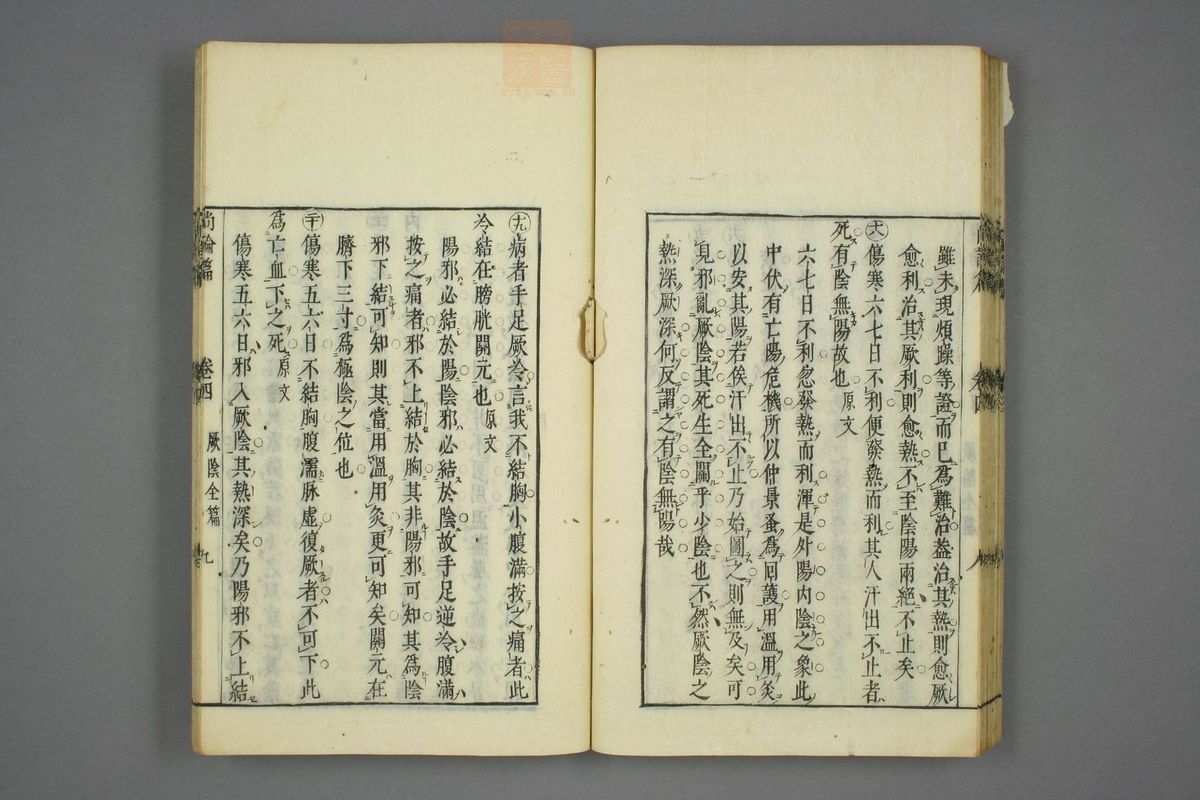 雖未現煩躁等證而已爲難治葢治其熱則愈厥
愈利治其厥利則愈熱不至陰陽兩絕不止矣
傷寒六七日不利便發熱而利其人汗出不止者
死有陰無陽故也原文
六七日不利忽發熱而利渾是外陽內陰之象此
中伏有亡陽危機所以仲景蚤爲回護用溫用灸
以安其陽若俟汗出不止乃始圖之則無及矣可
見邪亂厥陰其死生全關乎少陰也不然厥陰之
熱深厥深何反謂之有陰無陽哉
病者手足厥冷言我不結胸小腹滿按之痛者此
冷結在膀胱關元也原文
陽邪必結於陽陰邪必結於陰故手足逆冷腹滿
按之痛者邪不上結於胸其非陽邪可知其爲陰
邪下結可知則其當用溫用灸更可知矣關元在
臍下三寸爲極陰之位也
傷寒五六日不結胸腹濡脉虛復厥者不可下此
爲亡血下之死原文
傷寒五六日邪入厥陰其熱深矣乃陽邪不上結
尚論篇 卷四 厥陰全篇 九